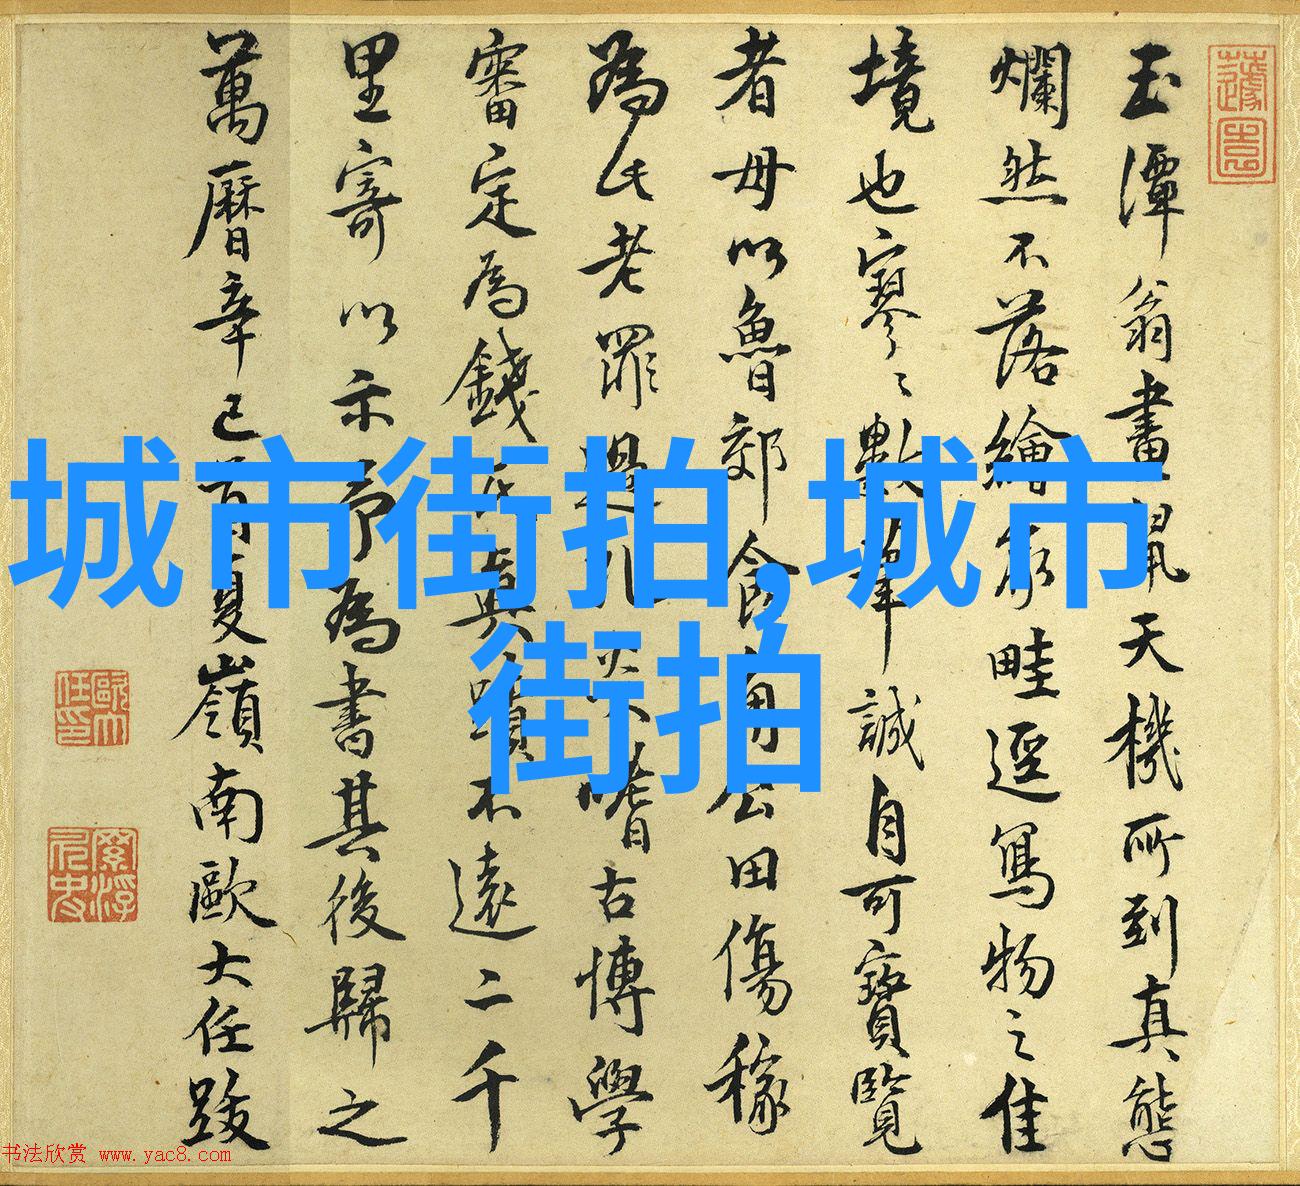 玉潭翁畫鼠天機所到真態
爛然不落繪家畦逕寫物之佳
境也寥寥數筆誠自可寶覽
者毋以魯郊食角公田傷稼
為氏老罪過孔炎嗜古博學
審定為錢氏真蹟不遠二千
里寄以示予為書其後歸之
萬曆辛巳首夏嶺南歐大任跋
城市街拍,城市
街拍
书法欣赏 www.yac8.com